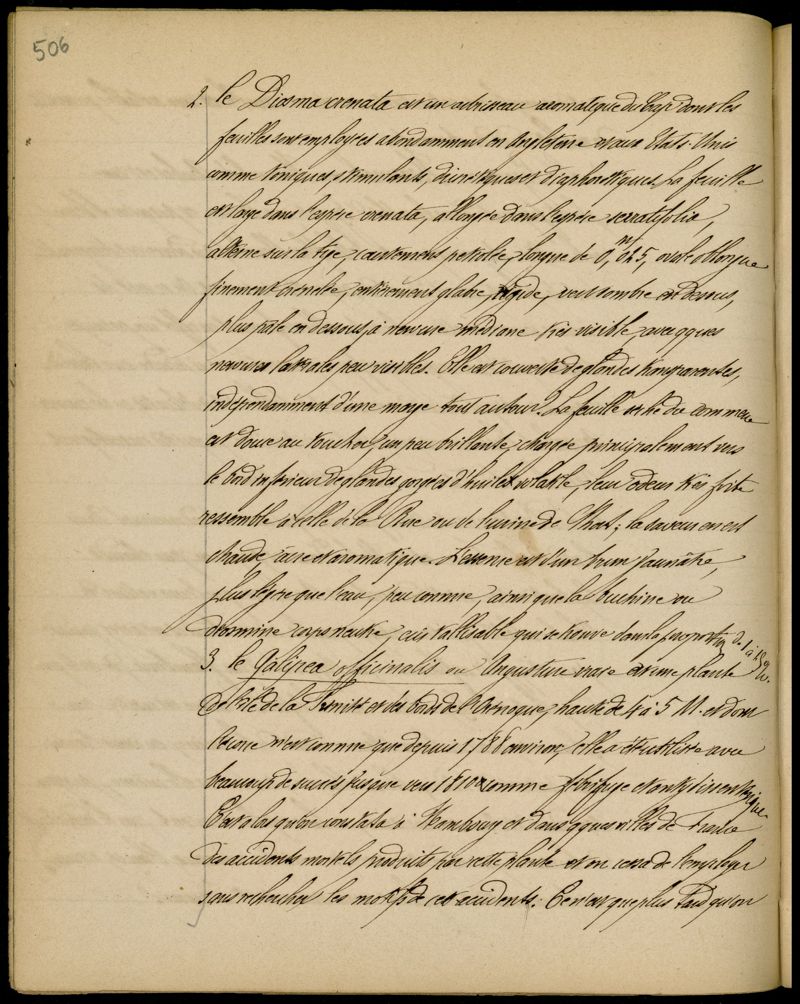 506
2. le Diosma crenata est un arbrisseau aromatique du Cap dont les
feuilles sont employées abondamment en Angleterre et aux Etats-Unis
comme toniques, stimulants, diurétiques et diaphorétiques. La feuille
est large dans l'espèce crenata, allongée dans l'espèce serratifolia,
alterne sur la tige, courtement petiolée, longue de 0,m025, ovale oblongue
finement crénelée, entièrement glabre, rigide, vert sombre en dessus,
plus pâle en dessous, à nervure médiane très visible, avec qques
nervures latérales peu visibles. Elle est couverte de glandes transparentes,
indépendamment d'une marge tout autour. La feuille sèche du commerce
est douce au toucher, un peu brillante, chargée principalement vers
le bord inférieur de glandes gorgées d'huile volatile, leur odeur très forte
ressemble à celle de la Rue ou de l'urine de Chat; la saveur en est
chaude, âcre et aromatique. L'essence est d'un brun jaunâtre,
plus légère que l'eau, peu connue, ainsi que la buchine ou
diosmine corps neutre, cristallisable qui se trouve dans la proportion de 1 à
3. le Galipea officinalis ou Angusture vraie est une plante
de l'île de la Trinité et des bords de l'Orénoque, haute de 4 à 5 M. et dont
l'écorce n'est connue que depuis 1788 environ, elle a été utilisée avec
beaucoup de succès jusque vers 1810 comme fébrifuge et antidysentérique
C'est alors qu'on constata à Hambourg et dans qques villes de
des accidents mortels produits par cette plante et on cessa de l'employer
sans rechercher les motifs de ces accidents. Ce n'est que plus tard qu'on